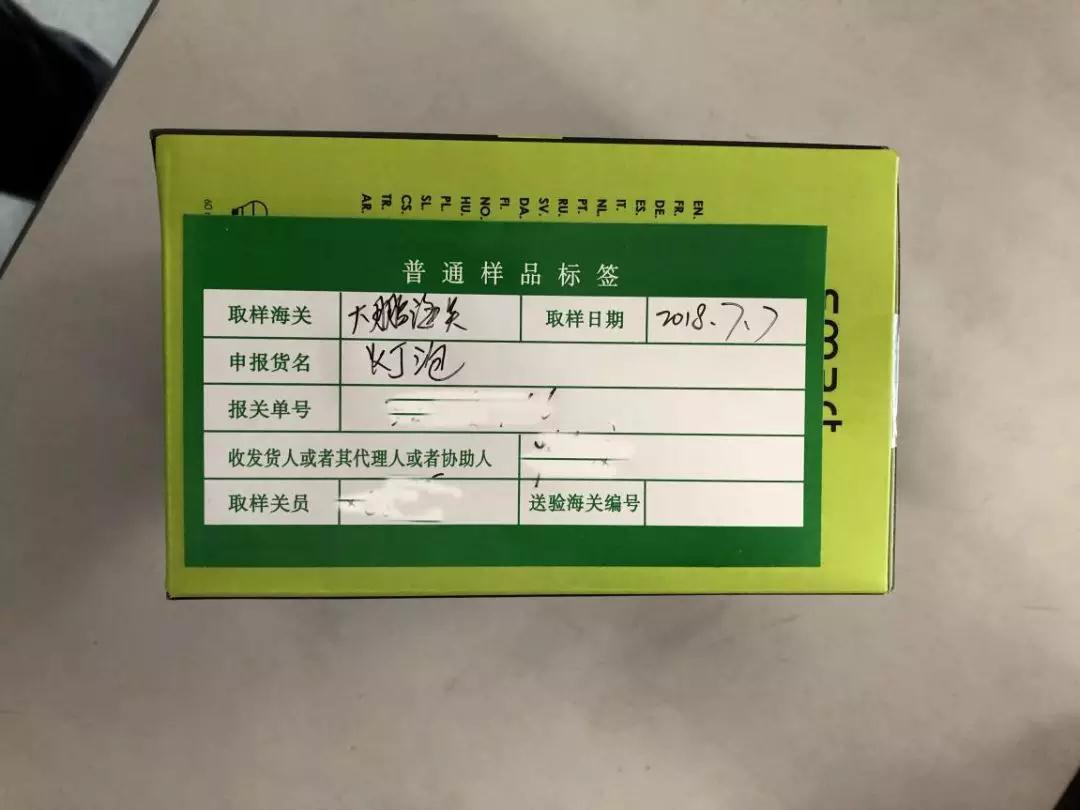 EN.
FR.
DE.
ES.
IT.
NL.
PT.
RU.
SV.
DA.
FI.
NO.
HU.
PL.
SL.
CS.
TR.
AR.
60
smart
普通样品标签
取样海关 大鹏海关 取样日期 2018.7.7
申报货名 灯泡
报关单号
收发货人或者其代理人或者协助人
取样关员 送验海关编号